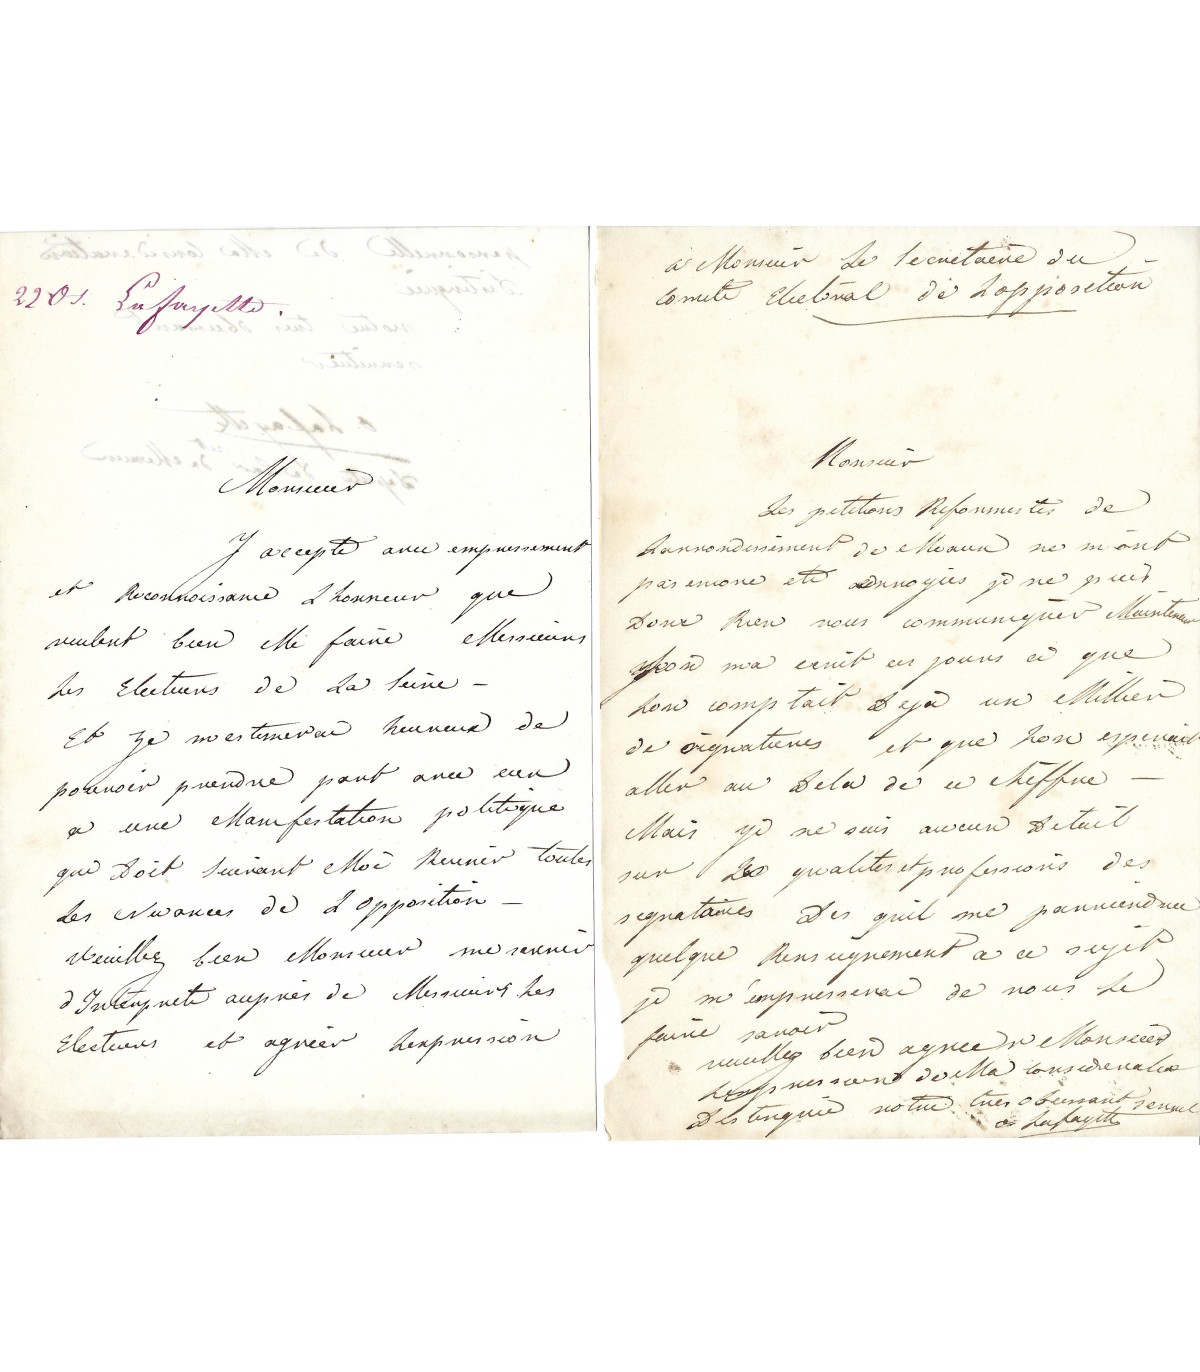 2205. Lafayette.
Monsieur
J accepte avec empressement
et Reconnoissance L honneur que
veulent bien Me faire Messieurs
Les Electeurs de La Seine –
Et Je m estimerai heureux de
pouvoir prendre part avec eux
a une Manifestation politique
qui Doit suivant Moi Reunir toutes
Les Nuances de L opposition –
Veuillez bien Monsieur me servir
d Interprete auprès de Messieurs Les
Electeurs et agréer Lexpression
personnelle de Ma Consideration
Distinguée
votre tres devoué
serviteur
Lafayette
a Monsieur Le Secretaire du
Comité Electoral de Lopposition
Monsieur
Les petitions Reformistes de
Larrondissement de Meaux ne m ont
pas encore eté envoyées je ne puis
Donc Rien vous communiquer Maintenant
Lon ma ecrit ces jours ci que
Lon comptait Déjà un Millier
de signatures et que Lon esperait
aller au Dela de ce cheffre –
Mais je ne sais aucun Detail
sur Les qualites et professions des
segnataires Des quil me parviendra
quelque Renseignement a ce sujet
je m'empresserai de vous Le
faire savoir
veuillez bien agreer Monsieur
Lexpression de Ma consideration
Distinguée votre tres obeissant servit
Lafayette